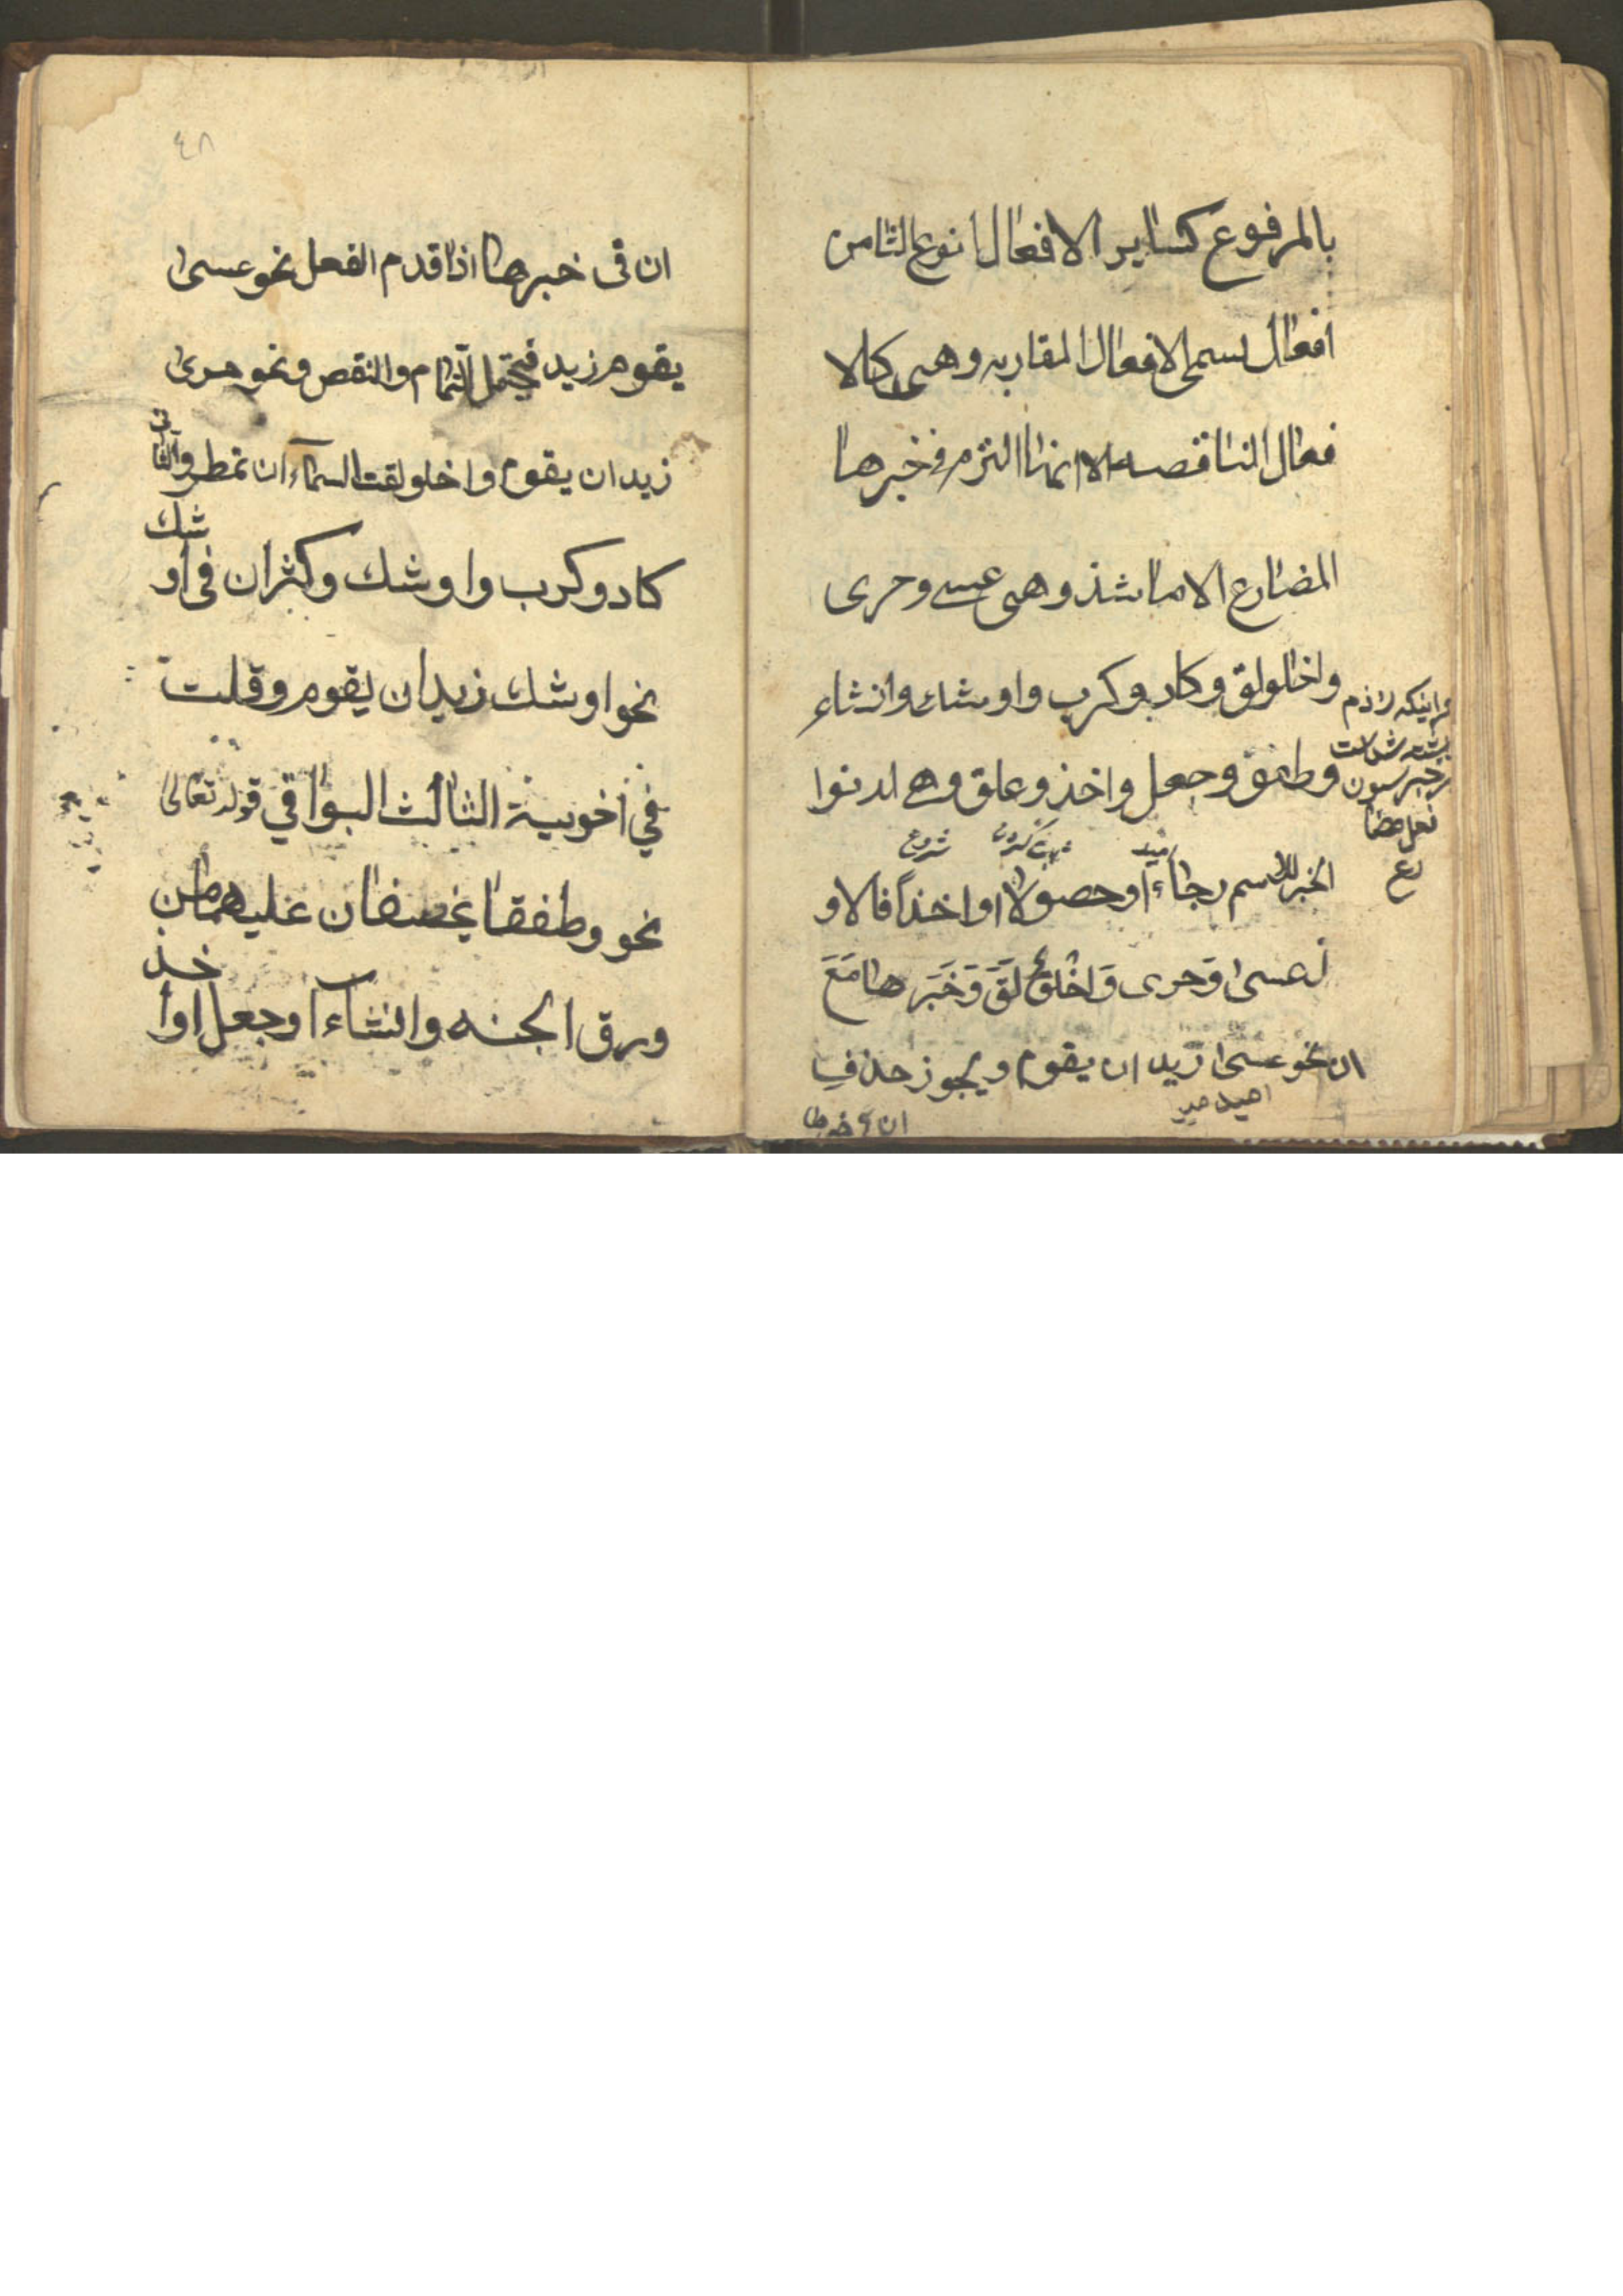 بالمرفوع كساير الافعال انوع الثامن
افعال تسمى الافعال المقاربه وهى كالا
فعال الناقصه الا انما التزم فى خبرها
المضارع الا ما شذ وهى عسى وحرى
واخلولق وكاد وكرب واوشك وانشاء
وطفق وجعل واخذ وعلق وهى لدنوا
الخبر للاسم رجاءً او حصولا او اخذاً فالاو
ل عسى وَحرى وَاخْلَوْلَقَ وَخَبَرها مَعَ
ان نحو عسى زيد ان يقوم ويجوز حذف
ان فى خبرها
شروع
فعل مضا
رع
٤٨
ان فى خبرها اذا قدم الفعل نحو عسى
يقوم زيد فيحتمل التمام والنقص ونحو حرى
زيد ان يقوم واخلولقت السماء ان تمطر والثانى
كاد وكرب واوشك وكثر ان فى اوشك
نحو اوشك زيد ان يقوم وقلت
فى اخويه الثالث البواقي قوله تعالى
نحو وطفقا يخصفان عليهما من
ورق الجنه وانشاء او جعل او اخذ